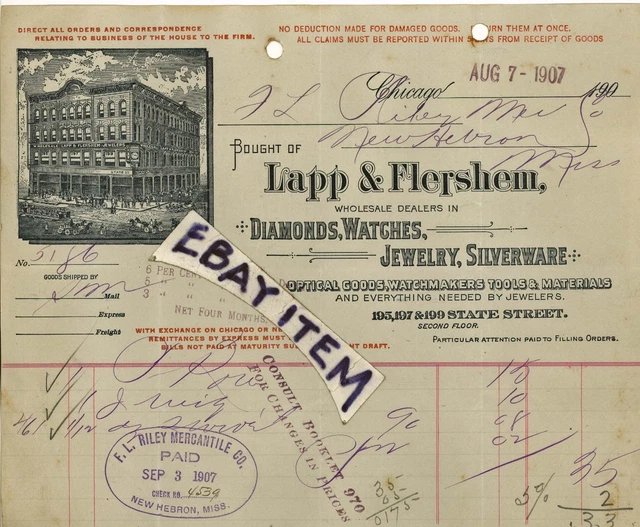 DIRECT ALL ORDERS AND CORRESPONDENCE
RELATING TO BUSINESS OF THE HOUSE TO THE FIRM.
NO DEDUCTION MADE FOR DAMAGED GOODS. URN THEM AT ONCE.
ALL CLAIMS MUST BE REPORTED WITHIN FROM RECEIPT OF GOODS
AUG 7 - 1907
Chicago 190
F L Riley Mer Co
New Hebron
Miss
BOUGHT OF
Lapp & Flershem,
WHOLESALE DEALERS IN
DIAMONDS, WATCHES,
JEWELRY, SILVERWARE
OPTICAL GOODS, WATCHMAKERS TOOLS & MATERIALS
AND EVERYTHING NEEDED BY JEWELERS.
195, 197 & 199 STATE STREET.
SECOND FLOOR.
PARTICULAR ATTENTION PAID TO FILLING ORDERS.
LAPP & FLERSHEM JEWELERS
No. 5186
GOODS SHIPPED BY
Mail
Express
Freight
6 PER CEN
5 " "
3 " "
NET FOUR MONTHS
WITH EXCHANGE ON CHICAGO OR NE
REMITTANCES BY EXPRESS MUST
BILLS NOT PAID AT MATURITY SU HT DRAFT.
EBAY ITEM
CONSULT BOOKLET 970
FOR CHANGES IN PRICES
1 15
1 10
1/12 90 08
02
35
5% 2
33
35
0175
F. L. RILEY MERCANTILE CO.
PAID
SEP 3 1907
CHECK NO. 4539
NEW HEBRON, MISS.